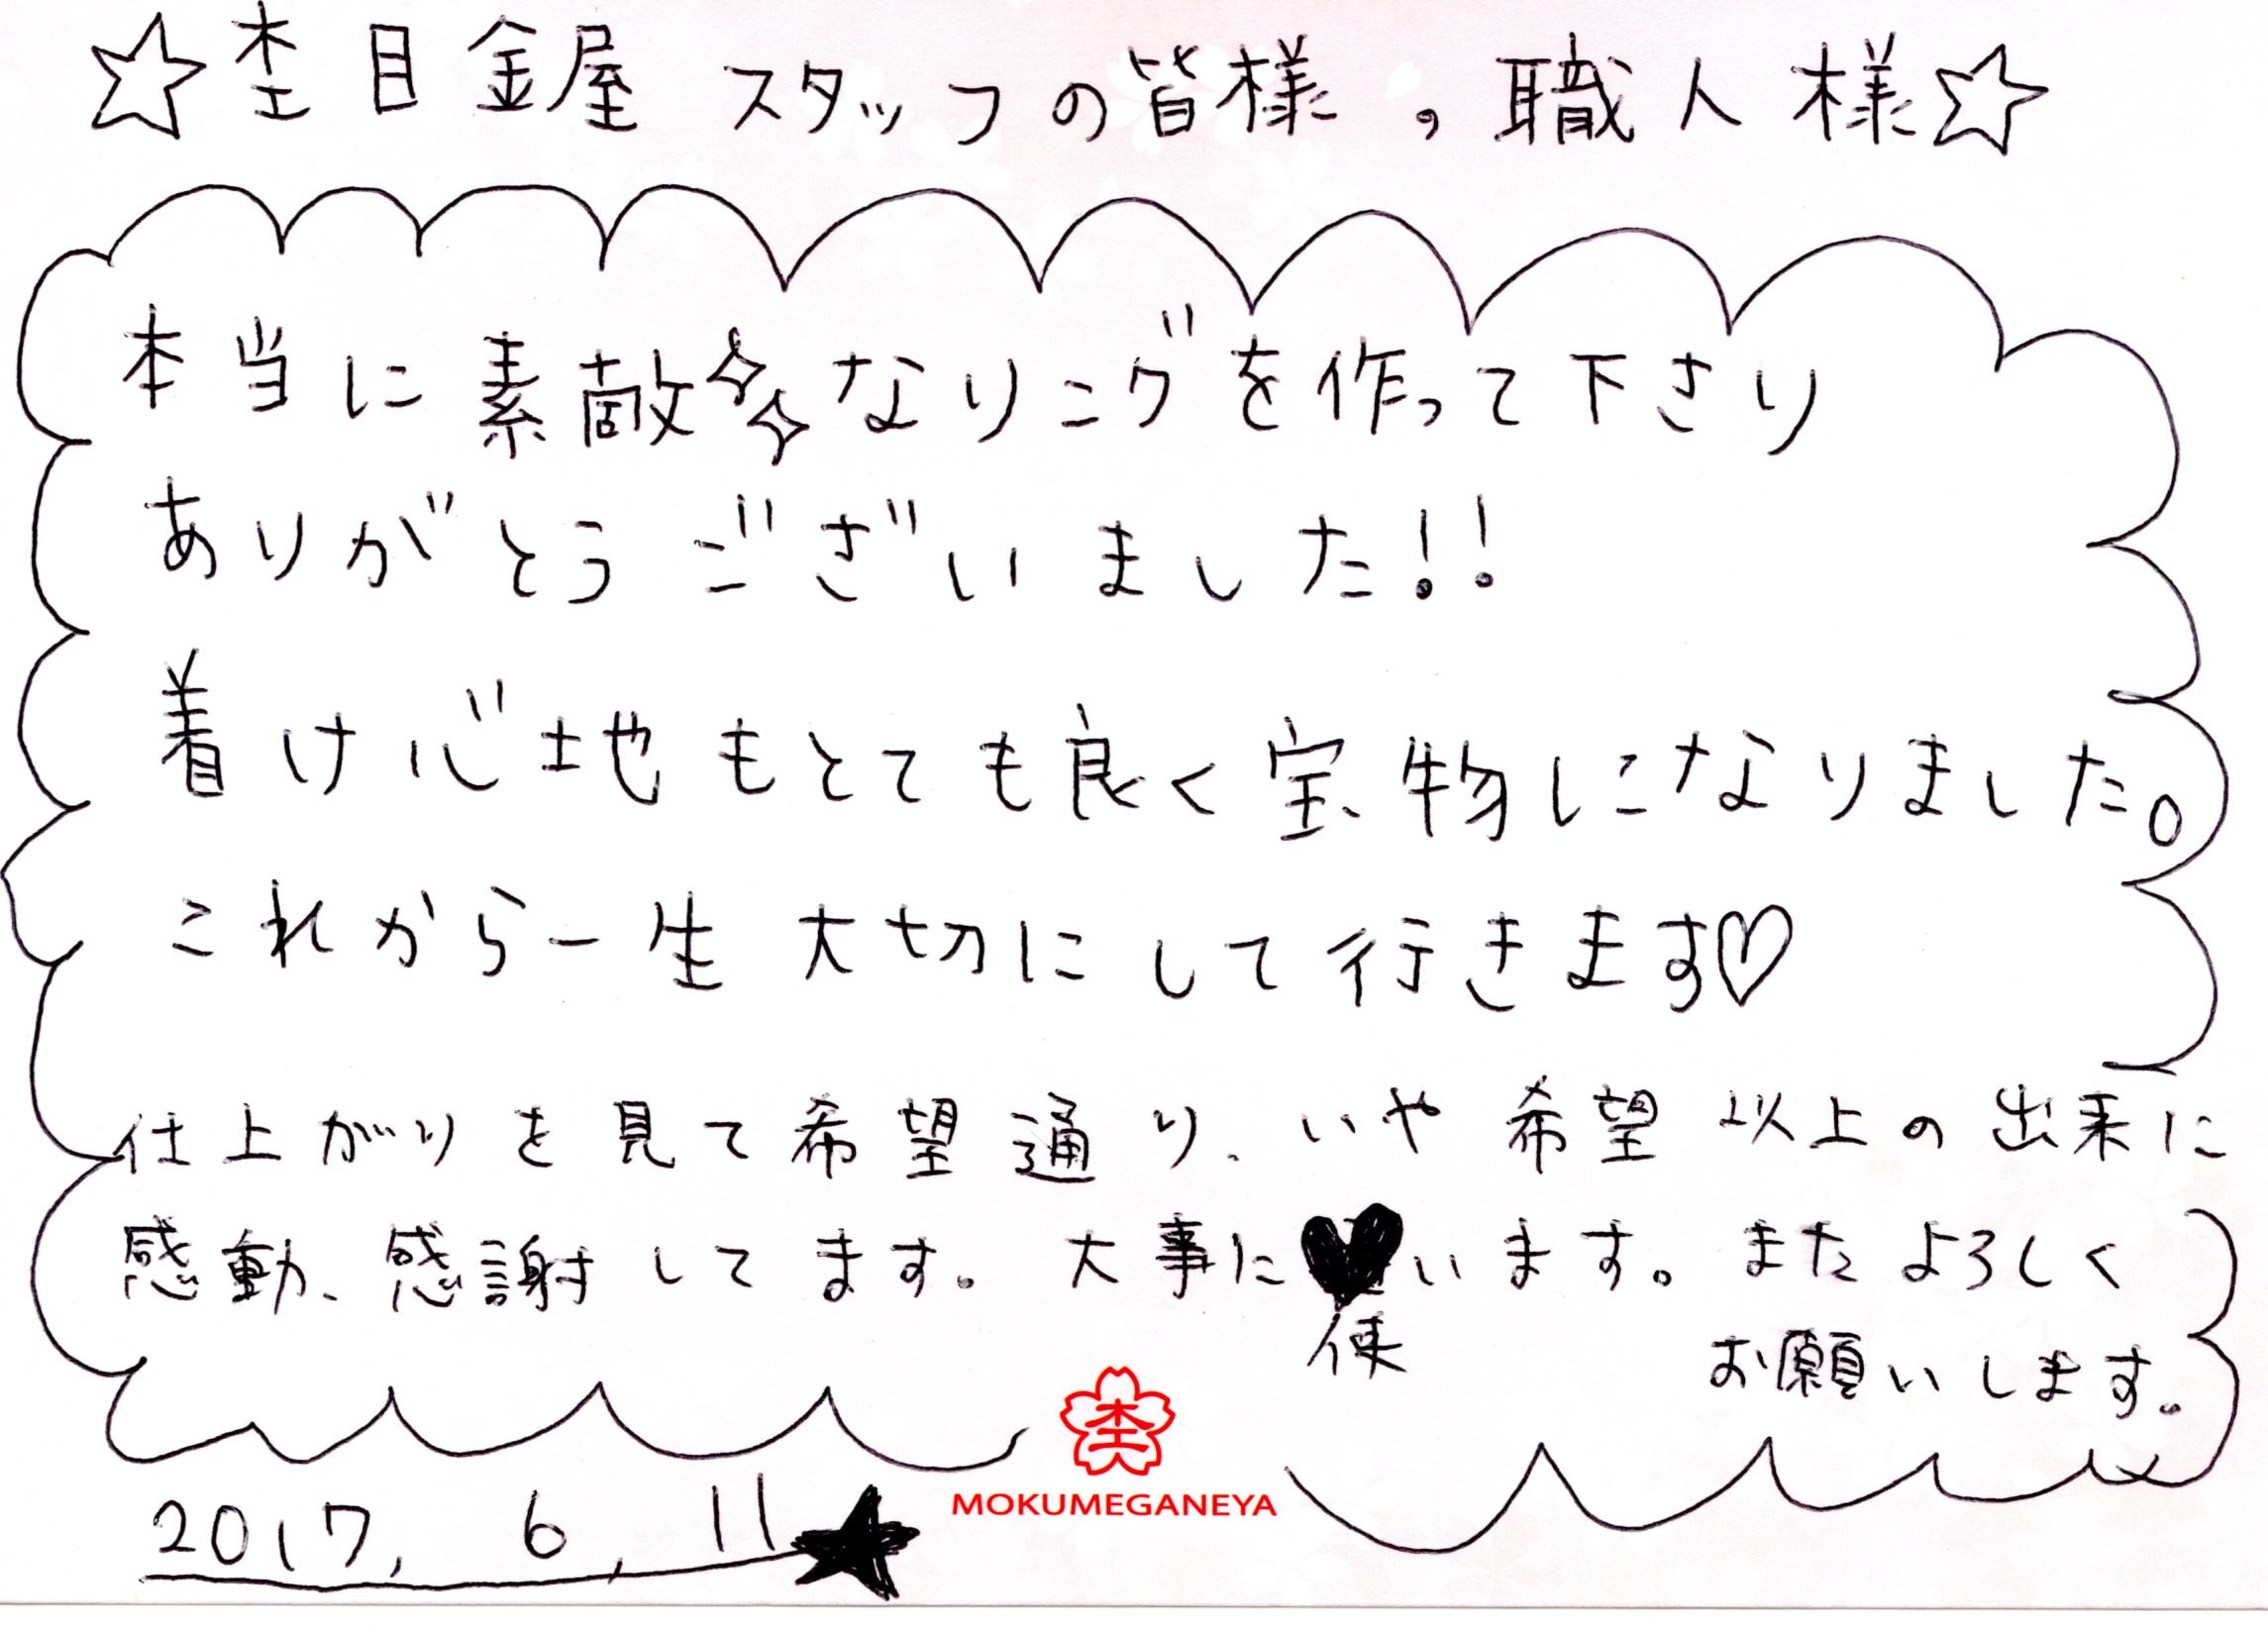 ☆杢目金屋 スタッフの皆様,職人様☆
本当に素敵なリングを作って下さり
ありがとうございました!!
着け心地もとても良く宝物になりました。
これから一生大切にして行きます♡
仕上がりを見て希望通り、いや希望以上の出来に
感動、感謝してます。大事に♥います。またよろしく
使
お願いします。
MOKUMEGANEYA
2017, 6, 11★